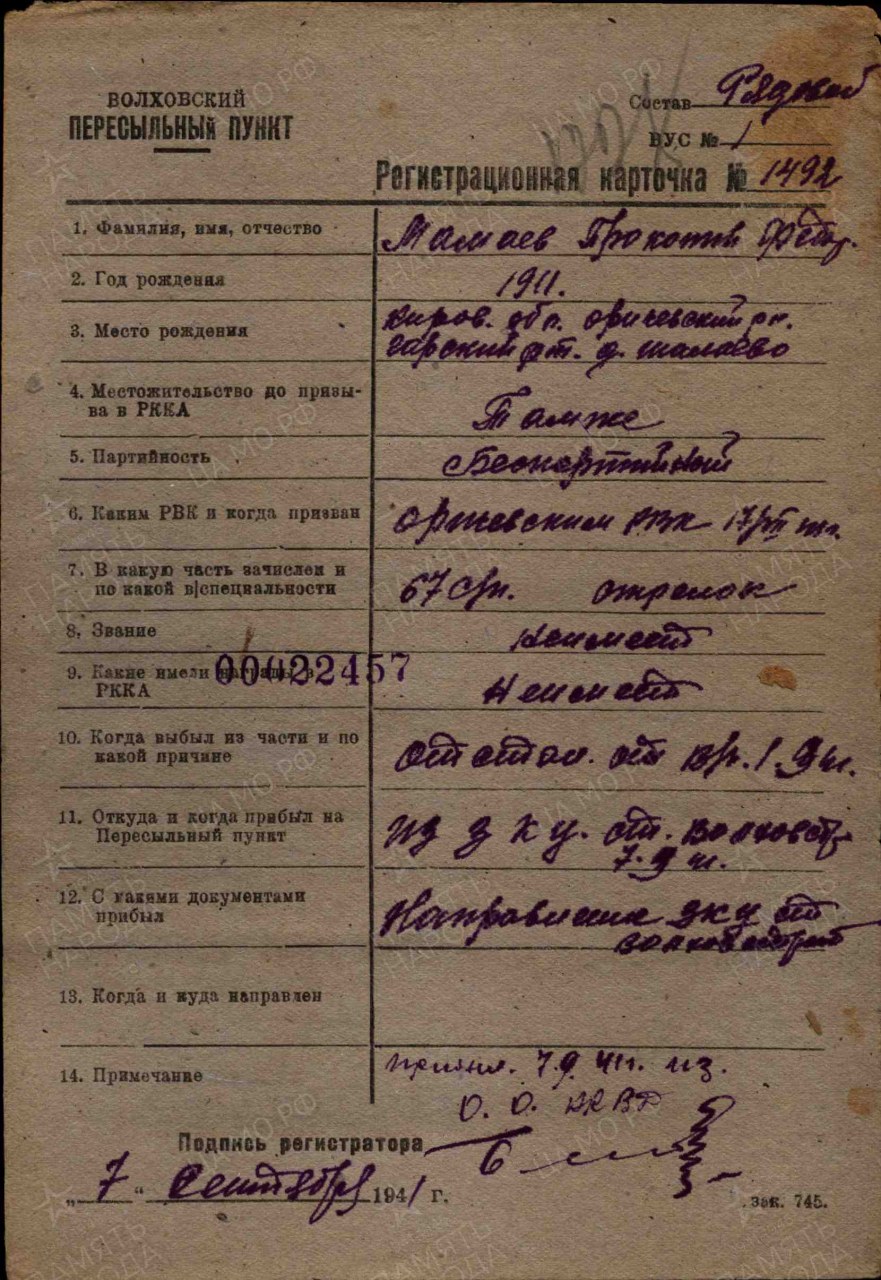 ВОЛХОВСКИЙ
ПЕРЕСЫЛЬНЫЙ ПУНКТ
Состав Рядовой
ВУС № 1
Регистрационная карточка № 1492
1. Фамилия, имя, отчество Мамаев Прокопий
2. Год рождения 1911.
3. Место рождения Киров. обл. оричевский рн.
д. шалаево
4. Местожительство до призы-
ва в РККА Там же
5. Партийность Беспартийный
6. Каким РВК и когда призван РВК
7. В какую часть зачислен и
по какой в|специальности 67 сп. стрелок
8. Звание Неимеет
9. Какие имели награды в
РККА Неимеет
00022457
10. Когда выбыл из части и по
какой причине отстал. от 1.9 41.
11. Откуда и когда прибыл на
Пересыльный пункт из З К У. ст. Волховстр
7.9 41.
12. С какими документами
прибыл Направление ЗКУ ст
волховстрой
13. Когда и куда направлен
14. Примечание 7.9.41г. из.
О. О. НКВД
Подпись регистратора
„ 7 “ Сентября 1941 г.
зак. 745.
ПАМЯТЬ НАРОДА
ЦА МО РФ